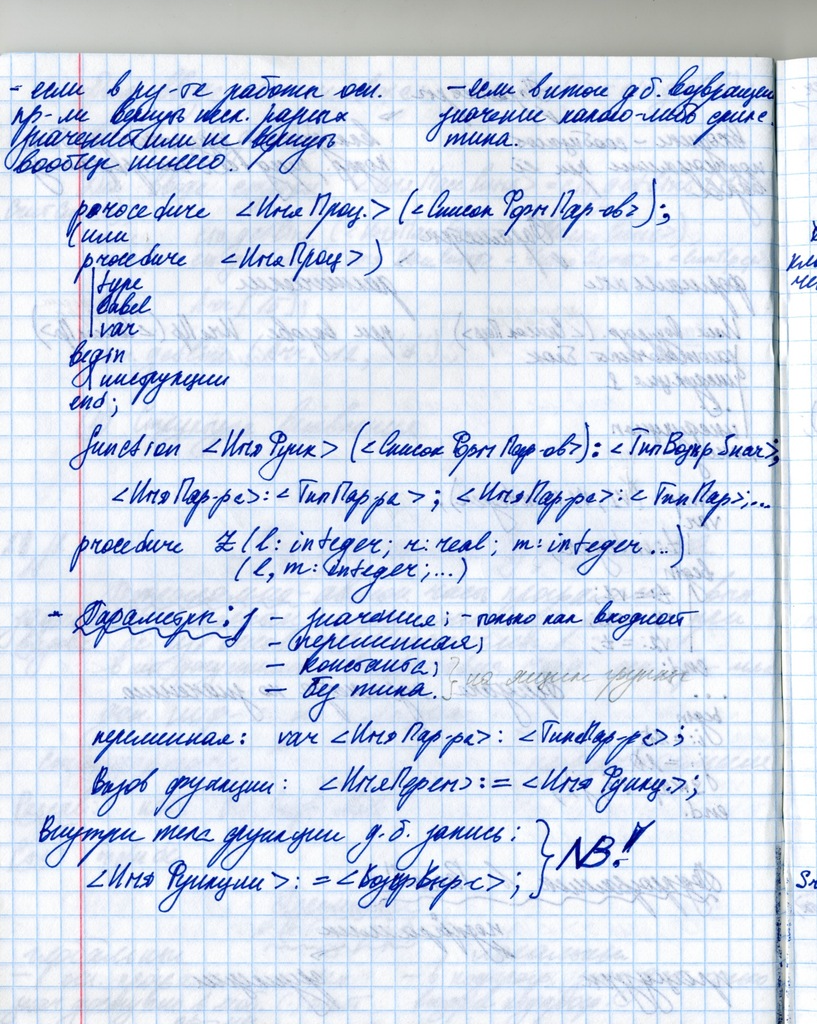 - если в ру-те работы осн.
пр-мы вернуть неск. разных
значений или не вернуть
вообще ничего.
- если в итоге д.б. возвращен
значение какого-либо
типа.
procedure <ИмяПроц.> (<Список ФормПар-ов>);
(или
procedure <ИмяПроц>)
type
label
var
begin
инструкции
end;
function <ИмяФунк> (<Список ФормПар-ов>): <ТипВозвр.Знач>;
<ИмяПар-ра>: <ТипПар-ра>; <ИмяПар-ра>: <ТипПар>;...
procedure Z (l: integer; r: real; m: integer...)
(l, m: integer;...)
- Параметры: - значения; - только как входной
- переменная;
- константа;
- без типа. } на лекции
переменная: var <ИмяПар-ра>: <ТипПар-ра>;
Вызов функции: <ИмяПерем>:= <ИмяФункц.>;
Внутри тела функции д.б. запись:
<Имя Функции>:= <ВозврВыр-е>; } NB!